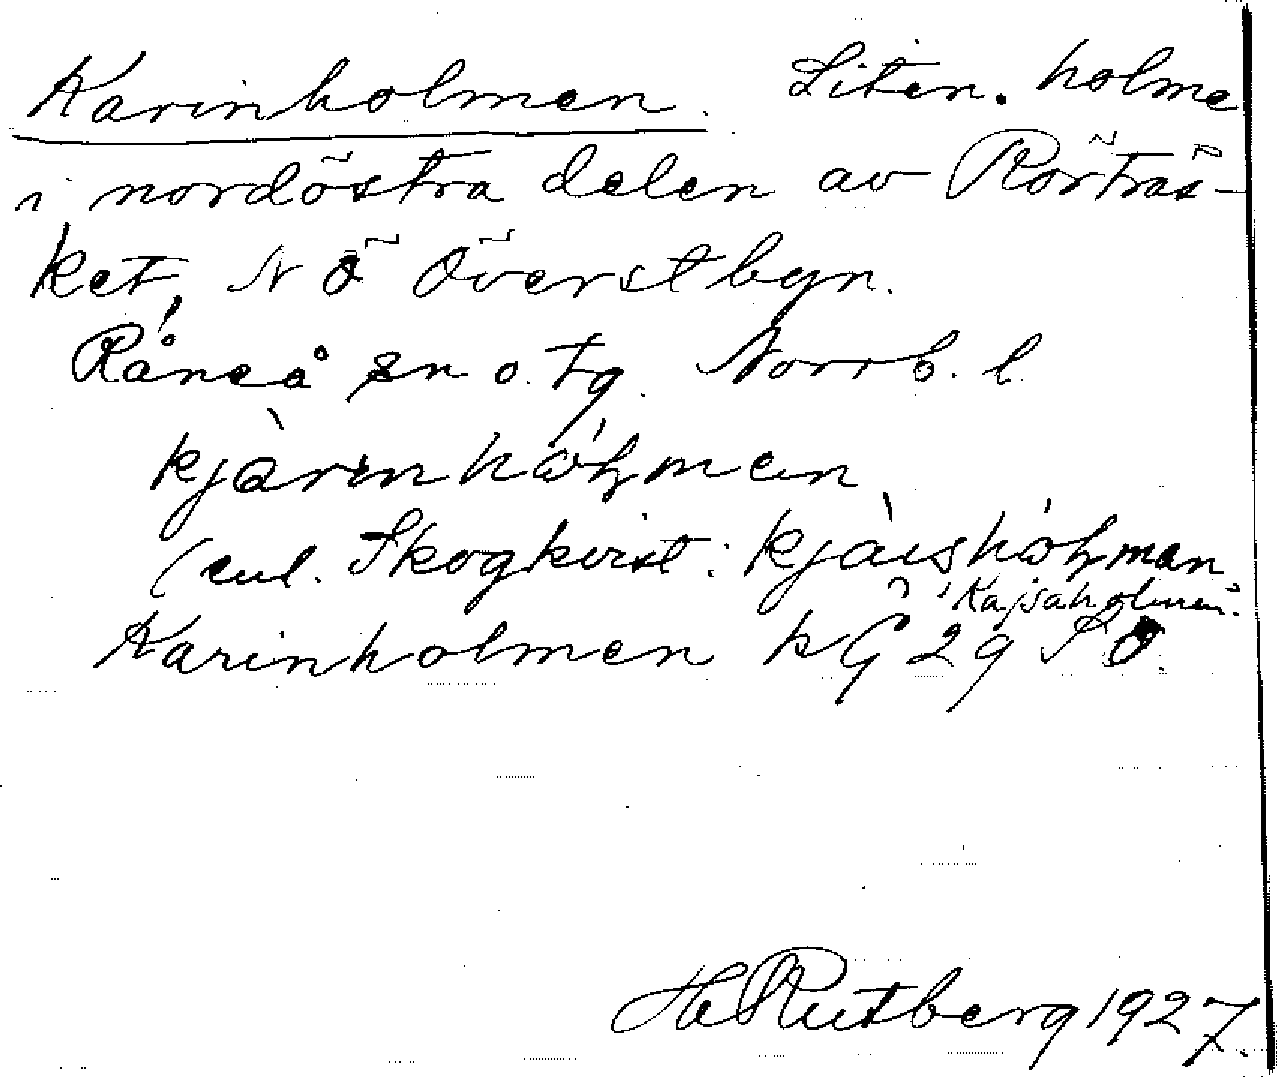 Karinholmen. Liten. holme
i nordöstra delen av Rörträs-
ket, N Ö Överstbyn.
Råneå sn o. tg. Norrb. l.
kjàrinhó̀ɫmen
(enl. Skogkvist: kjàisho̍ɫman,
'Kajsaholmen'.
Karinholmen kG 29 S Ö.
H Rutberg 1927.